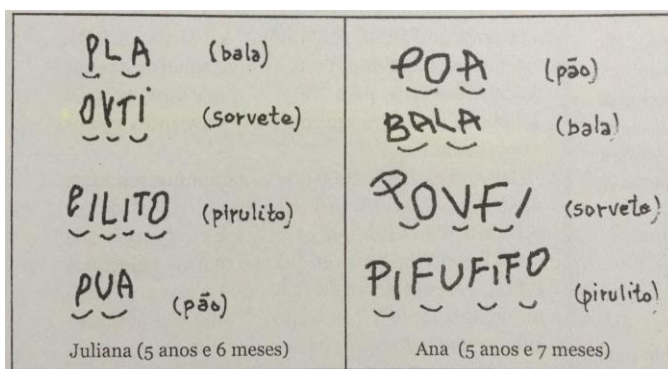 PLA (bala)
OVTI (sorvete)
PILITO (pirulito)
PUA (pão)
Juliana (5 anos e 6 meses)
POA (pão)
BALA (bala)
POVFI (sorvete)
PIFUFITO (pirulito)
Ana (5 anos e 7 meses)